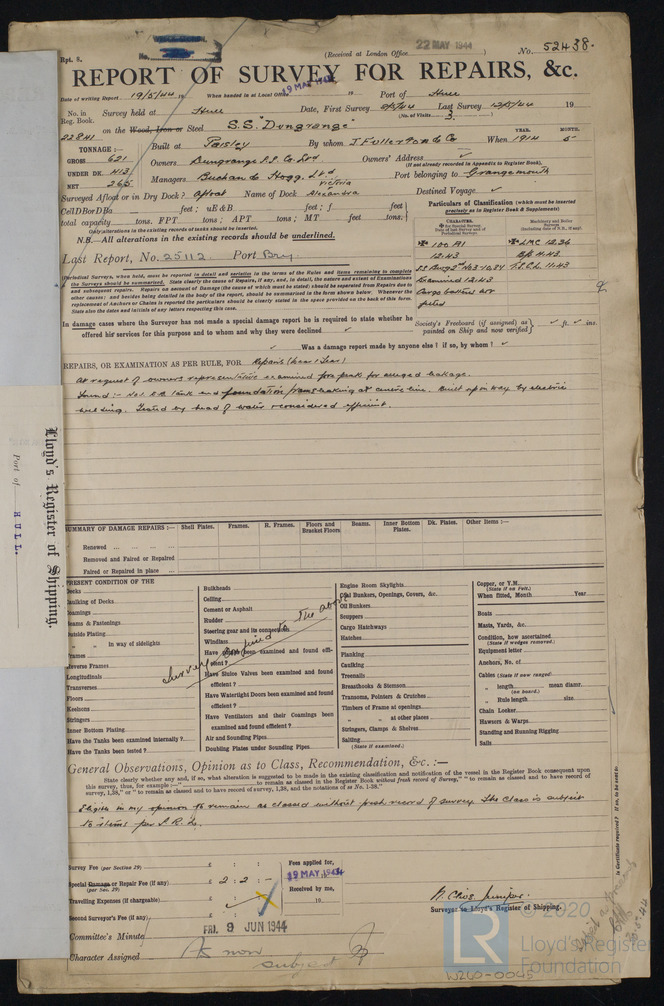 Rpt. 8.
No.
(Received at London Office 22 MAY 1944)
No. 52438.
REPORT OF SURVEY FOR REPAIRS, &c.
Date of writing Report 19/5/44 19 When handed in at Local Office 19 MAY 1944 19 Port of Hull
No. in Reg. Book. Survey held at Hull Date, First Survey Last Survey 19
(No. of Visits 3)
22841 on the Wood, Iron or Steel S.S. "Dungrange"
TONNAGE:— Built at Paisley By whom J Fullerton & Co When 1914 YEAR. MONTH. 5
GROSS 621 Owners Dungrange S.S. Co Ltd Owners' Address
(If not already recorded in Appendix to Register Book).
UNDER DK. 413 Managers Buchan & Hogg Ltd. Port belonging to Grangemouth
NET 265
Surveyed Afloat or in Dry Dock? Afloat Name of Dock Victoria Alexandra Destined Voyage
CellDBorDBa feet; uE&B feet; f feet
total capacity tons. FPT tons; APT tons; MT feet tons.
Only alterations in the existing records of tanks should be inserted.
N.B.—All alterations in the existing records should be underlined.
Last Report, No. 25112. Port Bry.
Particulars of Classification (which must be inserted precisely as in Register Book & Supplements)
100 A1 LMC 12.36
12.43 BS 11.43
T.S.C.L. 11.43
Examined 12.43
Cargo battens not
fitted
(Periodical Surveys, when held, must be reported in detail and seriatim in the terms of the Rules and items remaining to complete
the Surveys should be summarised.
In damage cases where the Surveyor has not made a special damage report he is required to state whether he
offered his services for this purpose and to whom and why they were declined
Society's Freeboard (if assigned) as painted on Ship and now verified ft. ins.
Was a damage report made by anyone else? if so, by whom?
REPAIRS, OR EXAMINATION AS PER RULE, FOR Repairs (Wear & Tear)
At request of owners representative examined fore peak for alleged leakage.
Found:- No 1 D.B. tank end foundation frames leaking at centre line. Built up in way by electric
welding. Tested by head of water & considered efficient.
SUMMARY OF DAMAGE REPAIRS:— Shell Plates. Frames. R. Frames. Floors and Bracket Floors. Beams. Inner Bottom Plates. Dk. Plates. Other Items:—
Renewed
Removed and Faired or Repaired
Faired or Repaired in place
PRESENT CONDITION OF THE
Decks
Caulking of Decks
Coamings
Beams & Fastenings
Outside Plating
" " in way of sidelights
Frames
Reverse Frames
Longitudinals
Transverses
Floors
Keelsons
Stringers
Inner Bottom Plating
Have the Tanks been examined internally?
Have the Tanks been tested?
Bulkheads
Ceiling
Cement or Asphalt
Rudder
Steering gear and its connections
Windlass
Have been examined and found efficient?
Have Sluice Valves been examined and found efficient?
Have Watertight Doors been examined and found efficient?
Have Ventilators and their Coamings been examined and found efficient?
Air and Sounding Pipes
Doubling Plates under Sounding Pipes
Survey confined to the above
Engine Room Skylights
Coal Bunkers, Openings, Covers, &c.
Oil Bunkers
Scuppers
Cargo Hatchways
Hatches
Planking
Caulking
Treenails
Breasthooks & Stemson
Transoms, Pointers & Crutches
Timbers of Frame at openings
" " at other places
Stringers, Clamps & Shelves
Salting
(State if examined.)
Copper, or Y.M.
(State if on felt.)
When fitted, Month Year
Boats
Masts, Yards, &c.
Condition, how ascertained
(State if wedges removed.)
Equipment letter
Anchors, No. of
Cables (State if now ranged)
" length mean diamr.
(on board.)
" Rule length size
Chain Locker
Hawsers & Warps
Standing and Running Rigging
Sails
General Observations, Opinion as to Class, Recommendation, &c.:—
State clearly whether any and, if so, what alteration is suggested to be made in the existing classification and notification of the vessel in the Register Book consequent upon
this survey, thus, for example:— "to remain as classed in the Register Book without fresh record of Survey," "to remain as classed and to have record of
survey, 1,38," or "to remain as classed and to have record of survey, 1,38, and the notations of ss No. 1-38."
Eligible in my opinion to remain as classed without fresh record of survey. The Class is subject
to items per S.R.L.
Survey Fee (per Section 29) £ : :
Fees applied for,
Special Damage or Repair Fee (if any) £ 2 : 2 : -
(per Sec. 29)
19 MAY 1944
Travelling Expenses (if chargeable) £ : :
Received by me,
19
Second Surveyor's Fee (if any) £ : :
Surveyor to Lloyd's Register of Shipping.
Committee's Minute FRI. 9 JUN 1944
Character Assigned As now
subject
Lloyd's Register of Shipping.
Port of HULL.
Is Certificate required? If so, to be sent to
© 2020
LR
Lloyd's Register
Foundation
W260-0045